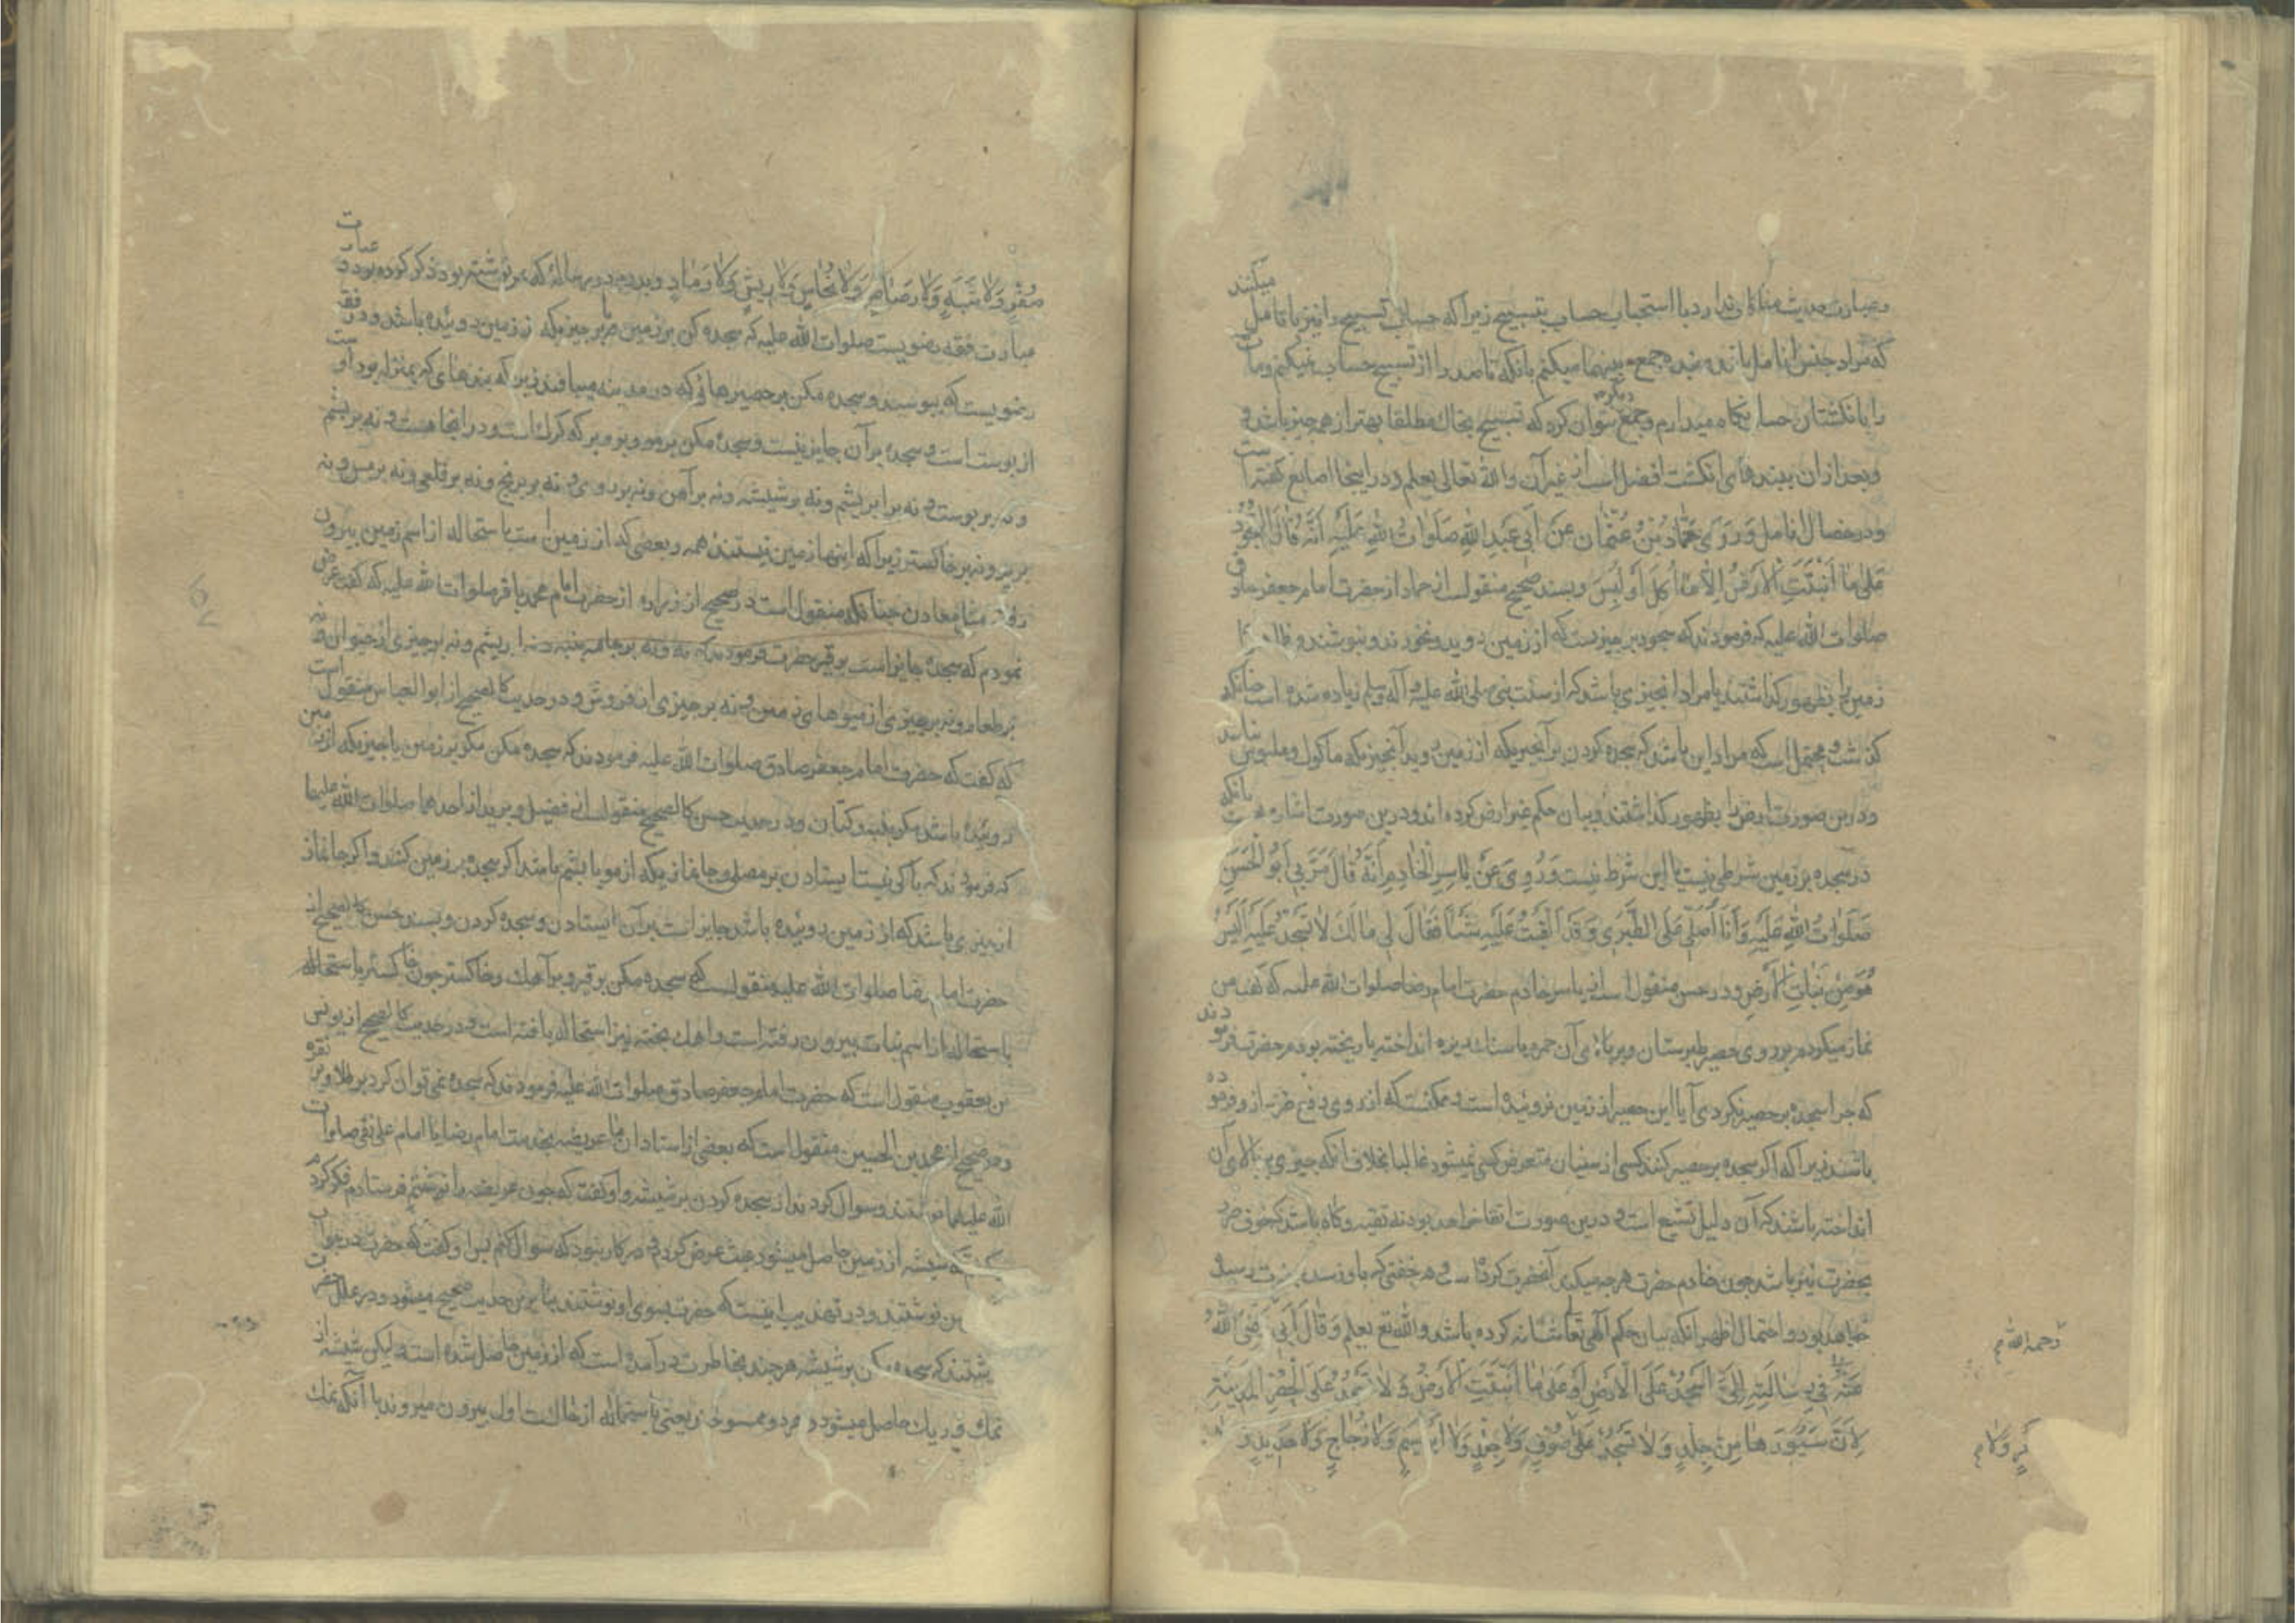 میکنند
وعبارت حدیث منافاتی ندارد با استحباب حساب بتسبیح زیرا که حساب تسبیح را نیز بانامل
که مراد جنس انامل باشد و بنده جمع بینهما میکنم بانکه تا صد را از تسبیح حساب میکنم و مات
را بانکشتان حساب نکاه میدارم و جمع دیکر میتوان کرد که تسبیح بخاك مطلقا بهتر از همه چیز باشد و
وبعد از ان ببندهای انکشت افضل است از غیر آن والله تعالی یعلم و در اینجا اصابع کفته است
ودر خصال انامل وَرَوَی حَمّادُ بْنُ عُثْمان عَنْ اَبی عَبْدِ اللهِ صَلَواتُ اللهِ عَلَیْهِ اَنَّهُ قالَ السُّجُودُ
عَلی ما اَنْبَتَتِ الْاَرْضُ اِلّا ما اُکِلَ اَوْ لُبِسَ وبسند صحیح منقولست از حماد از حضرت امام جعفر صادق
صلوات الله علیه که فرمودند که سجود بر چیزیست که از زمین بروید و نخورند و نپوشند و ظاهرا
زمین را بظهور کذاشتند یا مراد انچیزی باشد که از سنت نبی صلی الله علیه وآله وسلم زیاده شده است چنانکه
کذشت و محتمل است که مراد این باشد که سجده کردن بر آنچیزیکه از زمین بروید آنچیزیکه ماکول و ملبوس نباشد
ودرین صورت ارض را بظهور کذاشتند وبیان حکم غیر ارض کرده اند ودرین صورت اشاره است بانکه
در سجده بر زمین شرطی نیست یا این شرط نیست وَرُوِیَ عَنْ یاسِرِ الْخادِمِ اَنَّهُ قالَ مَرَّ بی اَبُو الْحَسَنِ
صَلَواتُ اللهِ عَلَیْهِ وَاَنَا اُصَلّی عَلَی الطَّبَری وَقَدْ اَلْقَیْتُ عَلَیْهِ شَیْئًا فَقالَ لی ما لَكَ لا تَسْجُدُ عَلَیْهِ اَلَیْسَ
هُوَ مِنْ نَباتِ الْاَرْضِ ودر حسن منقول است از یاسر خادم حضرت امام رضا صلوات الله علیه که کفت من
نماز میکردم بر روی حصیر طبرستان وبر بالای آن خمره یا سنك ریزه انداخته یا ریخته بودم حضرت فرمودند
که چرا سجده بر حصیر نکردی آیا این حصیر از زمین نروئیده است و ممکنست که از روی دفع ضرر از او فرموده
باشند زیرا که اکر سجده بر حصیر کند کسی از سنیان متعرض کسی نمیشود غالبا بخلاف انکه چیزی بر بالای آن
انداخته باشند که آن دلیل تشیع است و درین صورت اتقا خواهد بود نه تقیه و کاه باشد که خوف ضرر
بحضرت نیز باشد چون خادم حضرت هرچه میکند آنحضرت کرده است و هر خفتی که باو رسد بحضرت رسیده
خواهد بود و احتمال اظهر انکه بیان حکم الهی تعالی شانه کرده باشد والله تع یعلم وَقالَ اَبی رَضِیَ اللهُ
عَنْهُ فی رِسالَتِهِ اِلَیَّ اُسْجُدْ عَلَی الْاَرْضِ اَوْ عَلی ما اَنْبَتَتِ الْاَرْضُ وَلا تَسْجُدْ عَلَی الْحُصُرِ الْمَدَنِیَّةِ
لِاَنَّ سُیُورَها مِنْ جِلْدٍ وَلا تَسْجُدْ عَلی صُوفٍ وَلا جِلْدٍ وَلا اِبْرِیسَمٍ وَلا زُجاجٍ وَلا حَدِیدٍ وَ
رحمه الله م
صُفْرٍ وَلا شَبَهٍ وَلا رَصاصٍ وَلا نُحاسٍ وَلا رِیشٍ وَلا رَمادٍ وپدرم در رسالۀ که بمن نوشته بود ذکر کرده بود و عبارت
عبارت فقه رضویست صلوات الله علیه که سجده کن بر زمین یا بر چیزیکه از زمین روئیده باشد ودر فقه
رضویست که بپوسند وسجده مکن بر حصیرهائی که در مدینه میبافند زیرا که بندهای که بمنزله پود اوست
از پوست است و سجده بر آن جایز نیست و سجده مکن بر مو و بر وبر که کرك است و در اینجا هست و نه بر پشم
ونه بر پوست و نه بر ابریشم ونه بر شیشه ونه بر آهن ونه بر روی و نه بر برنج ونه بر قلعی ونه بر مس ونه
بر پر ونه بر خاکستر زیرا که اینها زمین نیستند همه وبعضی که از زمین است باستحاله از اسم زمین بیرون
رفته مثل معادن چنانکه منقول است در صحیح از زراره از حضرت امام محمد باقر صلوات الله علیه که کفت عرض
نمودم که سجده جایز است بر قیر حضرت فرمودند که نه ونه بر جامه پنبه ونه ابریشم ونه بر چیزی از حیوان و نه
بر طعام ونه بر چیزی از میوهای زمین ونه بر چیزی از فروش ودر حدیث کالصحیح از ابو العباس منقول است
که کفت که حضرت امام جعفر صادق صلوات الله علیه فرمودند که سجده مکن مکر بر زمین یا چیزیکه از زمین
روئیده باشد مکر پنبه وکتان ودر حدیث حسن کالصحیح منقولست از فضیل وبرید از احدهما صلوات الله علیهما
که فرمودند که باکی نیست ایستادن بر مصلی و جانمازیکه از مو یا پشم باشد اکر سجده بر زمین کند و اکر جانماز
از چیزی باشد که از زمین روئیده باشد جایز است بر آن ایستادن وسجده کردن وبسند حسن کالصحیح از
حضرت امام رضا صلوات الله علیه منقولست که سجده مکن بر قیر وبر آهك وخاکستر چون خاکستر باستحاله
باستحاله از اسم نبات بیرون رفته است واهك پخته نیز استحاله یافته است و در حدیث کالصحیح از یونس
بن یعقوب منقول است که حضرت امام جعفر صادق صلوات الله علیه فرمودند که سجده نمی توان کرد بر طلا و بر نقره
ودر صحیح از محمد بن الحسین منقول است که بعضی از استادان ما عریضه بخدمت امام رضا یا امام علی نقی صلوات
الله علیهما نوشتند وسوال کردند از سجده کردن بر شیشه و او کفت که چون عریضه را نوشتم فرستادم فکر کردم
که شیشه از زمین حاصل میشود عبث عرض کردم و در کار نبود که سوال کنم پس او کفت که حضرت در جواب
من نوشتند ودر تهذیب اینست که حضرت بسوی او نوشتند بنا برین حدیث صحیح میشود ودر علل حضرت
نوشتند که سجده مکن بر شیشه هرچند بخاطرت در آمده است که از زمین حاصل شده است ولیکن شیشه از
نمك و ریك حاصل میشود و هردو ممسوخند یعنی باستحاله از حالت اول بیرون میروند با آنکه نمك